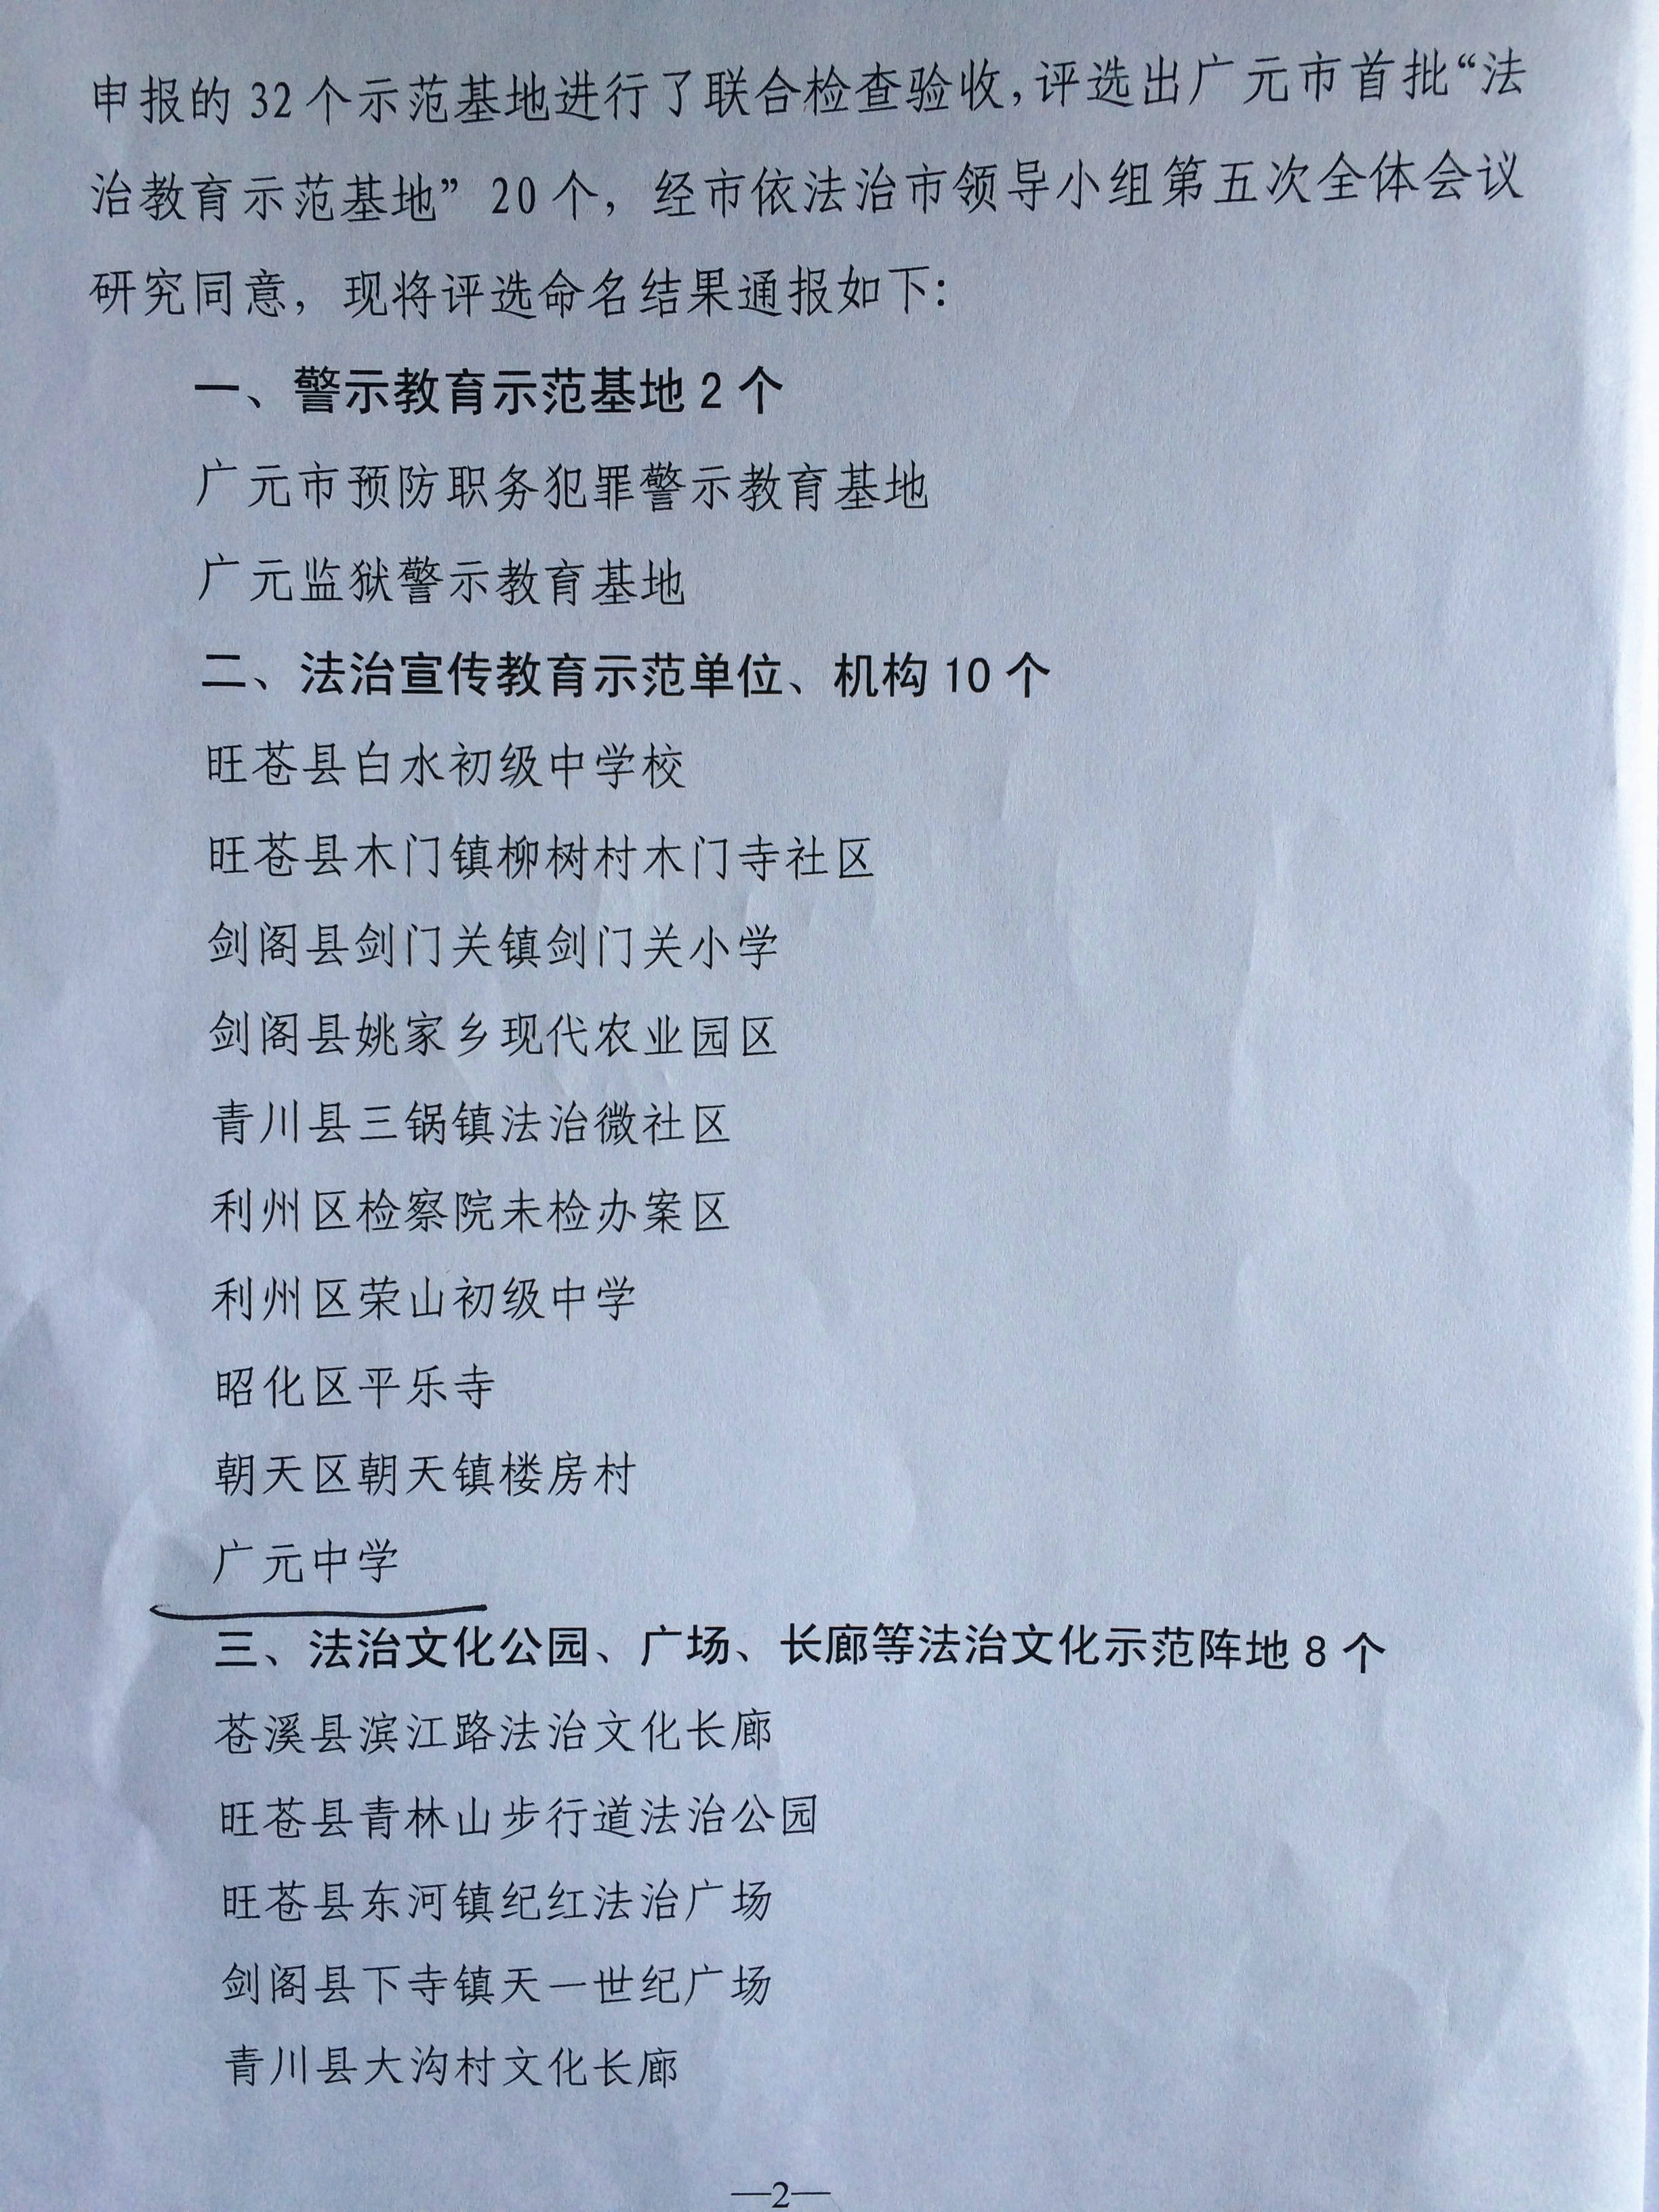 申报的 32 个示范基地进行了联合检查验收,评选出广元市首批“法
治教育示范基地” 20 个，经市依法治市领导小组第五次全体会议
研究同意，现将评选命名结果通报如下:
一、警示教育示范基地 2 个
广元市预防职务犯罪警示教育基地
广元监狱警示教育基地
二、法治宣传教育示范单位、机构 10 个
旺苍县白水初级中学校
旺苍县木门镇柳树村木门寺社区
剑阁县剑门关镇剑门关小学
剑阁县姚家乡现代农业园区
青川县三锅镇法治微社区
利州区检察院未检办案区
利州区荣山初级中学
昭化区平乐寺
朝天区朝天镇楼房村
广元中学
三、法治文化公园、广场、长廊等法治文化示范阵地 8 个
苍溪县滨江路法治文化长廊
旺苍县青林山步行道法治公园
旺苍县东河镇纪红法治广场
剑阁县下寺镇天一世纪广场
青川县大沟村文化长廊
—2—